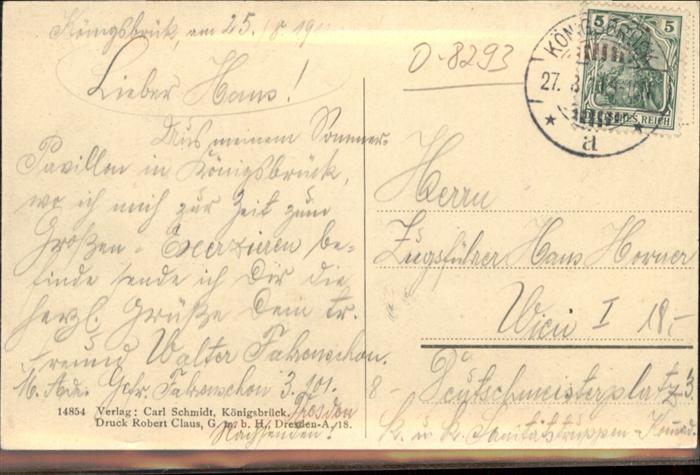 Königsbrück, am 25./8. 19
O-8293
Lieber Hans!
Aus meinem Sommer-
Pavillon in Königsbrück,
wo ich mich zur Zeit zum
Großen-Exerzieren be-
finde sende ich Dir die
herzl. Grüße Dein tr.
Freund Walter
3. 101.
Dresden
Nachsenden!
14854 Verlag: Carl Schmidt, Königsbrück.
Druck Robert Claus, G. m. b. H., Dresden-A. 18.
5 5
DEUTSCHES REICH
KÖNIGSBRÜCK
27. 8
a
Herrn
Zugsführer Hans Horner
Wien I
8 - Deutschmeisterplatz 3.
k. u. k. Sanitätstruppen-